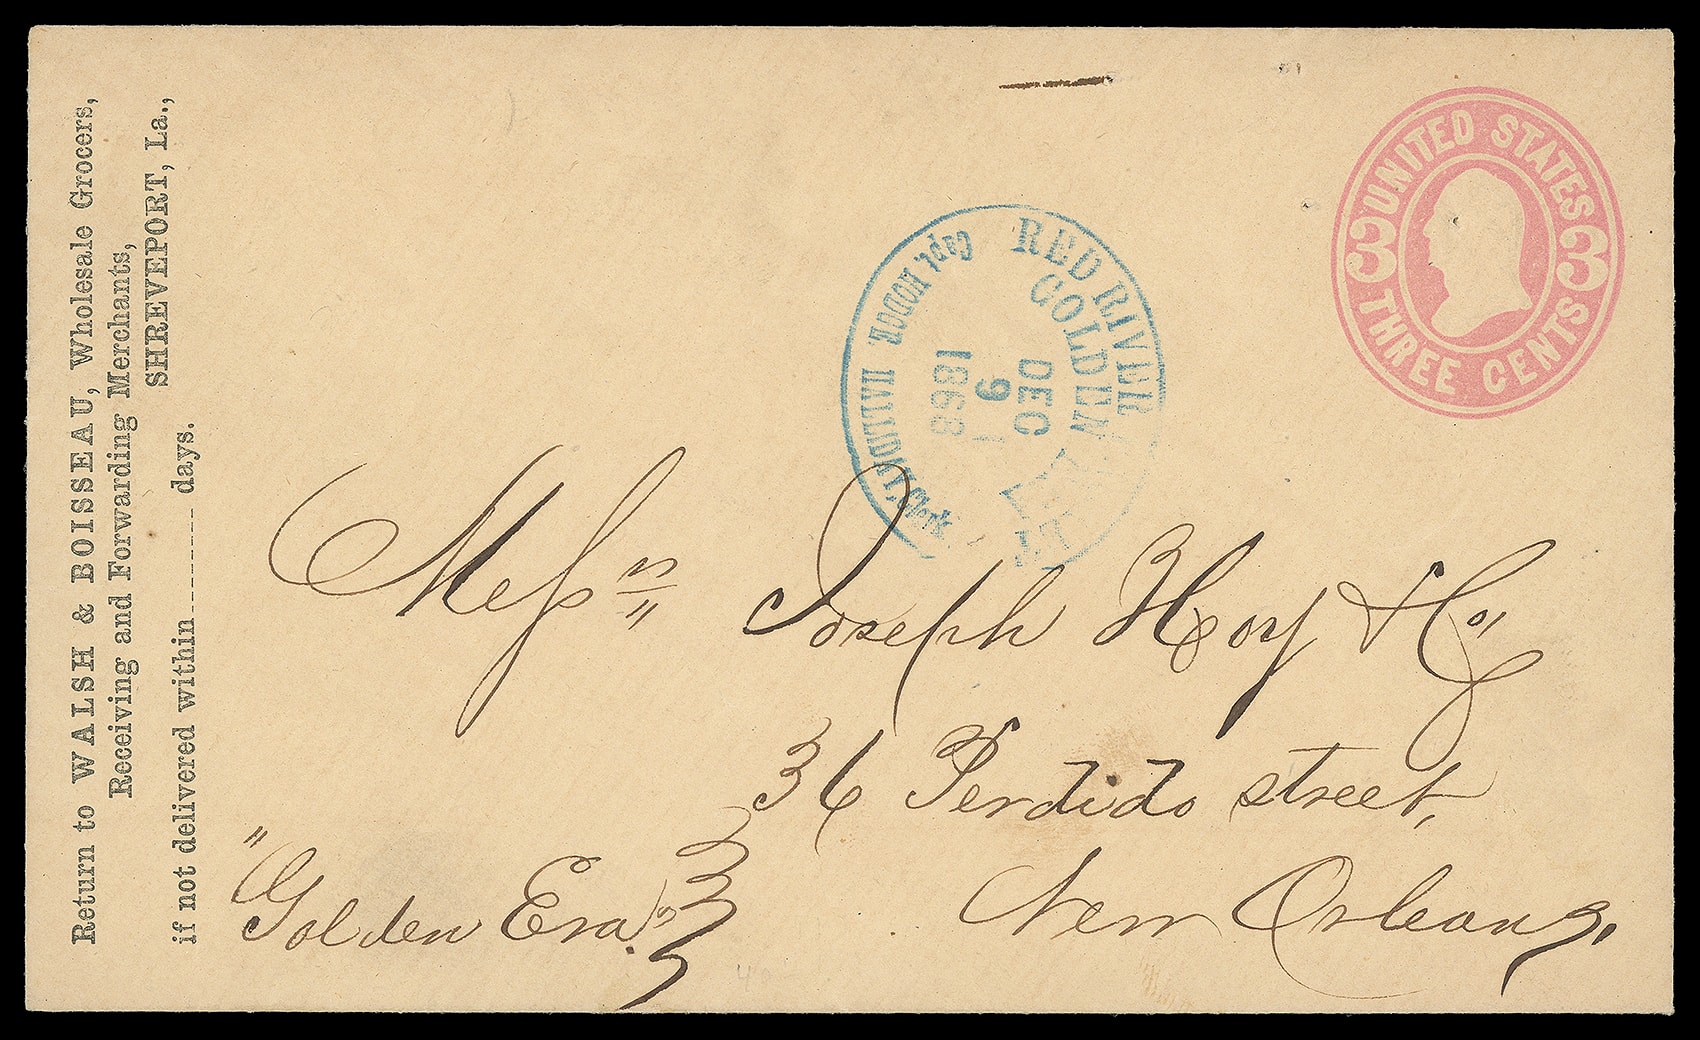 Return to WALSH & BOISSEAU, Wholesale Grocers,
Receiving and Forwarding Merchants,
SHREVEPORT, La.,
if not delivered within ........... days.
UNITED STATES
3 3
THREE CENTS
RED RIVER
GOLDEN
DEC
9
1868
Capt. HODGE
Clerk
Messrs
Joseph Hoy & Co
36 Perdido street,
New Orleans,
"Golden Era"